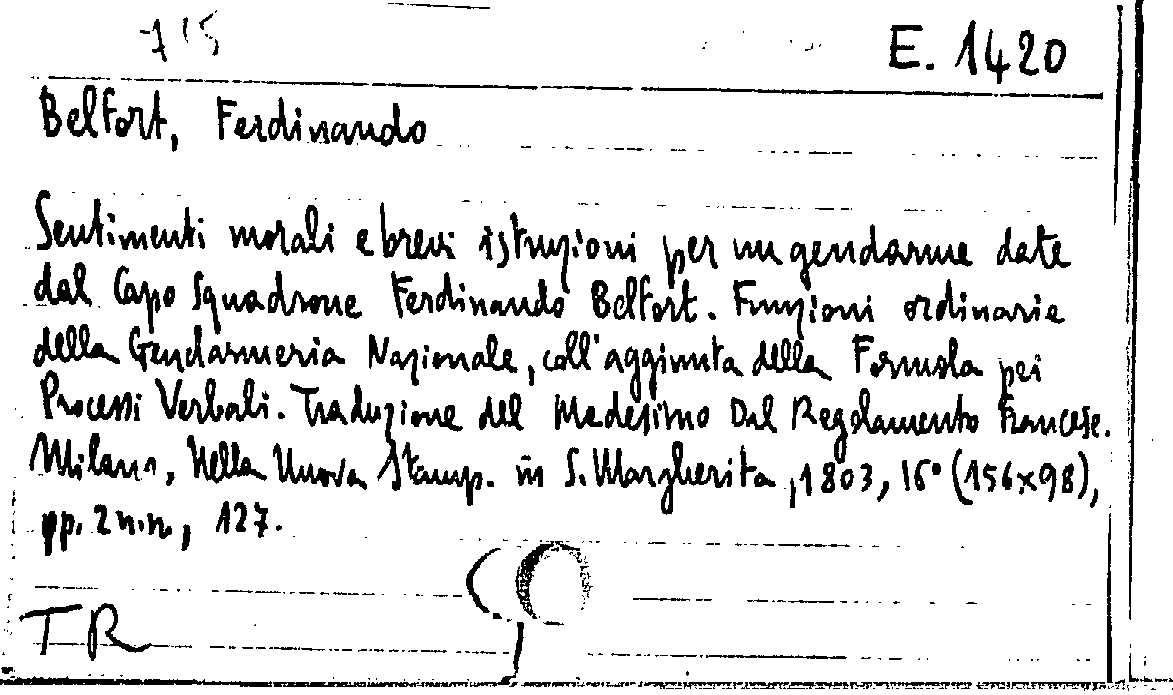 715
E. 1420
Belfort, Ferdinando
Sentimenti morali e brevi istruzioni per un gendarme date
dal Capo Squadrone Ferdinando Belfort. Funzioni ordinarie
della Gendarmeria Nazionale, coll'aggiunta della Formola pei
Processi Verbali. Traduzione del Medesimo Dal Regolamento Francese.
Milano, Nella Nuova Stamp. in S. Margherita, 1803, 16° (156x98),
pp. 2 n.n., 127.
TR